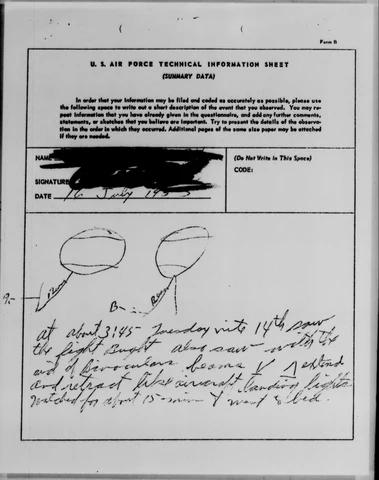 Form B
U. S. AIR FORCE TECHNICAL INFORMATION SHEET
(SUMMARY DATA)
In order that your information may be filed and coded as accurately as possible, please use
the following space to write out a short description of the event that you observed. You may re-
peat information that you have already given in the questionnaire, and add any further comments,
statements, or sketches that you believe are important. Try to present the details of the observa-
tion in the order in which they occurred. Additional pages of the same size paper may be attached
if they are needed.
NAME
(Do Not Write in This Space)
CODE:
SIGNATURE
DATE 16 July 1953
B-
at about 3:45 Tuesday nite 14th saw
the light also saw with the
aid of Binoculars beams extend
and retract like aircraft landing lights
watched for about 15-min & went to bed.